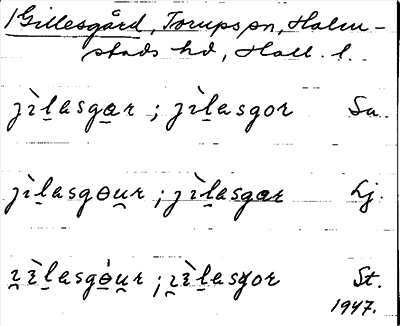 Gillesgård, Torups sn, Halm-
stads hd, Hall. l.
jìlasgɑr ; jìlasgor Sa.
jìlasgɵur ; jìlasgɑr Lj.
ɪ̀lasgɵ́ur ; ɪ̀lasgor St.
1947.